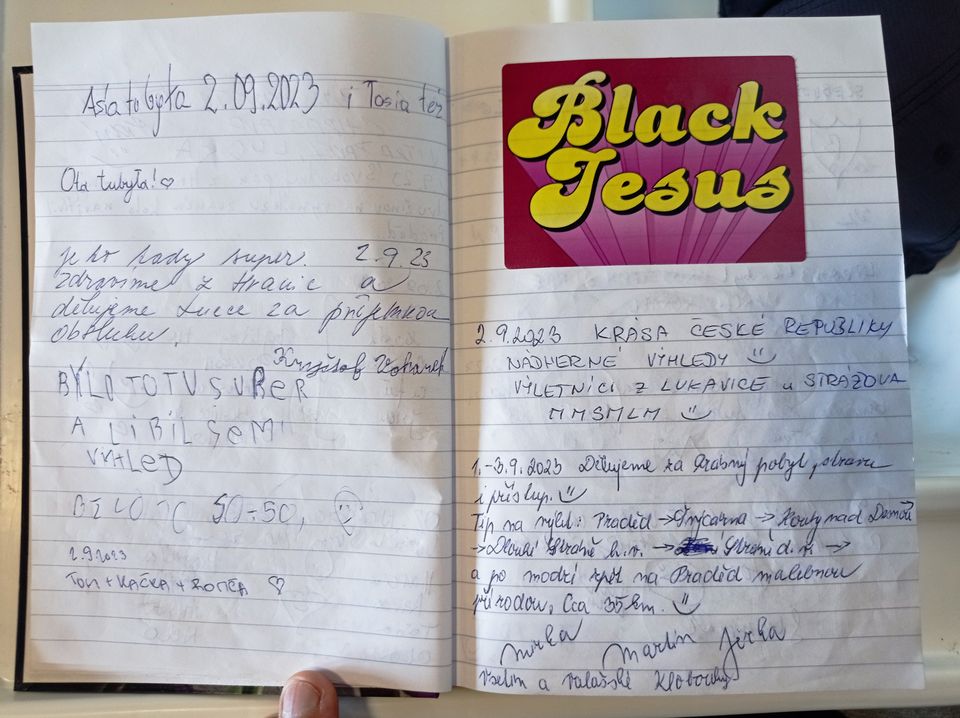 Asia tobyła 2.09.2023 i Tosia też
Ola tubyła! ♡
je ho hady super. 2.9.23
Zdravíme z Hranic a
děkujeme Lucce za příjemnou
obsluhu.
Kryštof
BYLO TO TU SUPER
A LÍBIL SE MI
VÝHLED
BYLO 50-50,
2.9.2023
TOM + KAČKA + ♡
Black
Jesus
2.9.2023 KRÁSA ČESKÉ REPUBLIKY
NÁDHERNÉ VÝHLEDY
VÝLETNÍCI Z LUKAVICE u STRÁŽOVA
MMSMLM
1.-3.9.2023 Děkujeme za krásný pobyt, stravu
i přístup.
Tip na výlet: Praděd → Švýcárna → Kouty nad Desnou
→ Dlouhé Stráně h.n. → Stráně d.n. →
a po modré zpět na Praděd malebnou
přírodou, Cca 35 km.
Mirka Martin Jirka
Vsetín a Valašské Klobouky